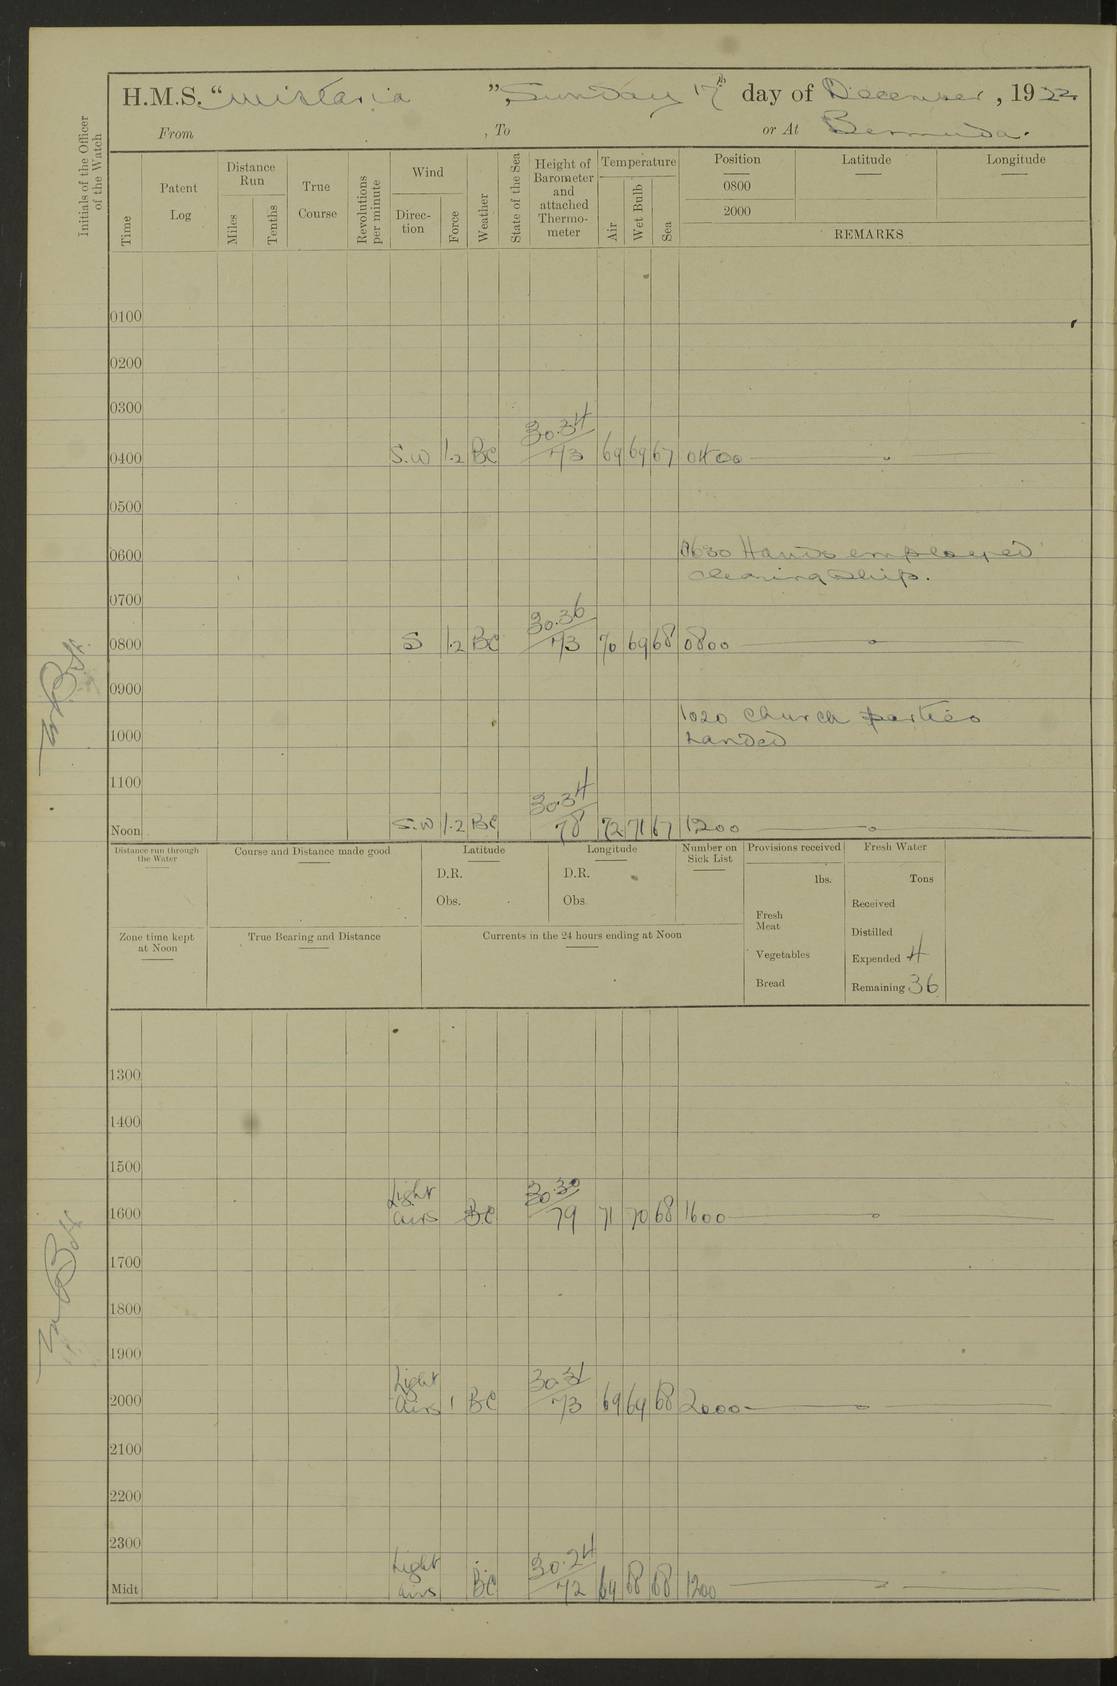 H.M.S. “Wistaria ”, Sunday 17th day of December, 1922
From , To or At Bermuda.
Initials of the Officer of the Watch
Time
Patent Log
Distance Run
Miles
Tenths
True Course
Revolutions per minute
Wind
Direc-tion
Force
Weather
State of the Sea
Height of Barometer and attached Thermo-meter
Temperature
Air
Wet Bulb
Sea
Position Latitude Longitude
0800
2000
REMARKS
0100
0200
0300
0400 S.W 1.2 BC 30.34/73 69 69 67 0400
0500
0600 0630 Hands employed
cleaning ship.
0700
0800 S 1.2 BC 30.36/73 70 69 68 0800
0900
1020 Church parties
1000 Landed
1100
Noon S.W 1.2 BC 30.34/78 72 71 67 1200
Distance run through the Water
Course and Distance made good
Latitude
D.R.
Obs.
Longitude
D.R.
Obs
Number on Sick List
Provisions received
lbs.
Fresh Meat
Vegetables
Bread
Fresh Water
Tons
Received
Distilled
Expended 4
Remaining 36
Zone time kept at Noon
True Bearing and Distance
Currents in the 24 hours ending at Noon
1300
1400
1500
1600 Light airs BC 30.30/79 71 70 68 1600
1700
1800
1900
2000 Light airs 1 BC 30.31/73 69 69 68 2000
2100
2200
2300
Midt Light airs BC 30.24/72 69 68 68 1200